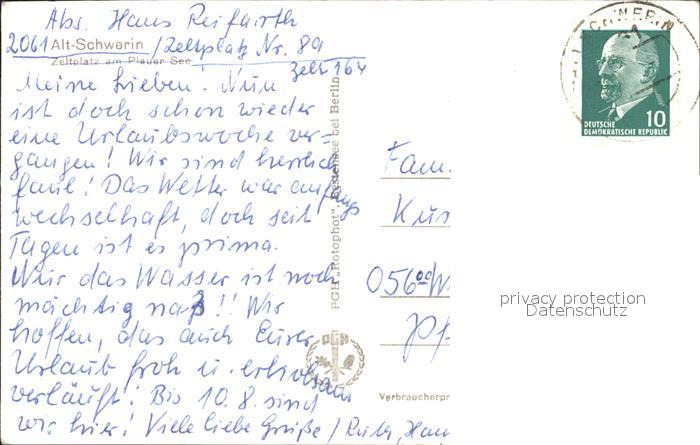 Abs. Hans Reifarth
2061 Alt-Schwerin /Zeltplatz Nr. 89
Zeltplatz am Plauer See
Zelt 164
Meine Lieben! Nun
ist doch schon wieder
eine Urlaubswoche ver-
gangen! Wir sind herrlich
faul! Das Wetter war anfangs
wechselhaft, doch seit
Tagen ist es prima.
Nur das Wasser ist noch
mächtig naß!! Wir
hoffen, das auch Eurer
Urlaub froh u. erholsam
verläuft! Bis 10.8. sind
wir hier! Viele liebe Grüße / Ruth, Han
PGH „Rotophot", Bestensee bei Berlin
PGH
Verbraucherpr
SCHWERIN
10
DEUTSCHE
DEMOKRATISCHE REPUBLIK
Fam.
Kus
056
Pf
privacy protection
Datenschutz